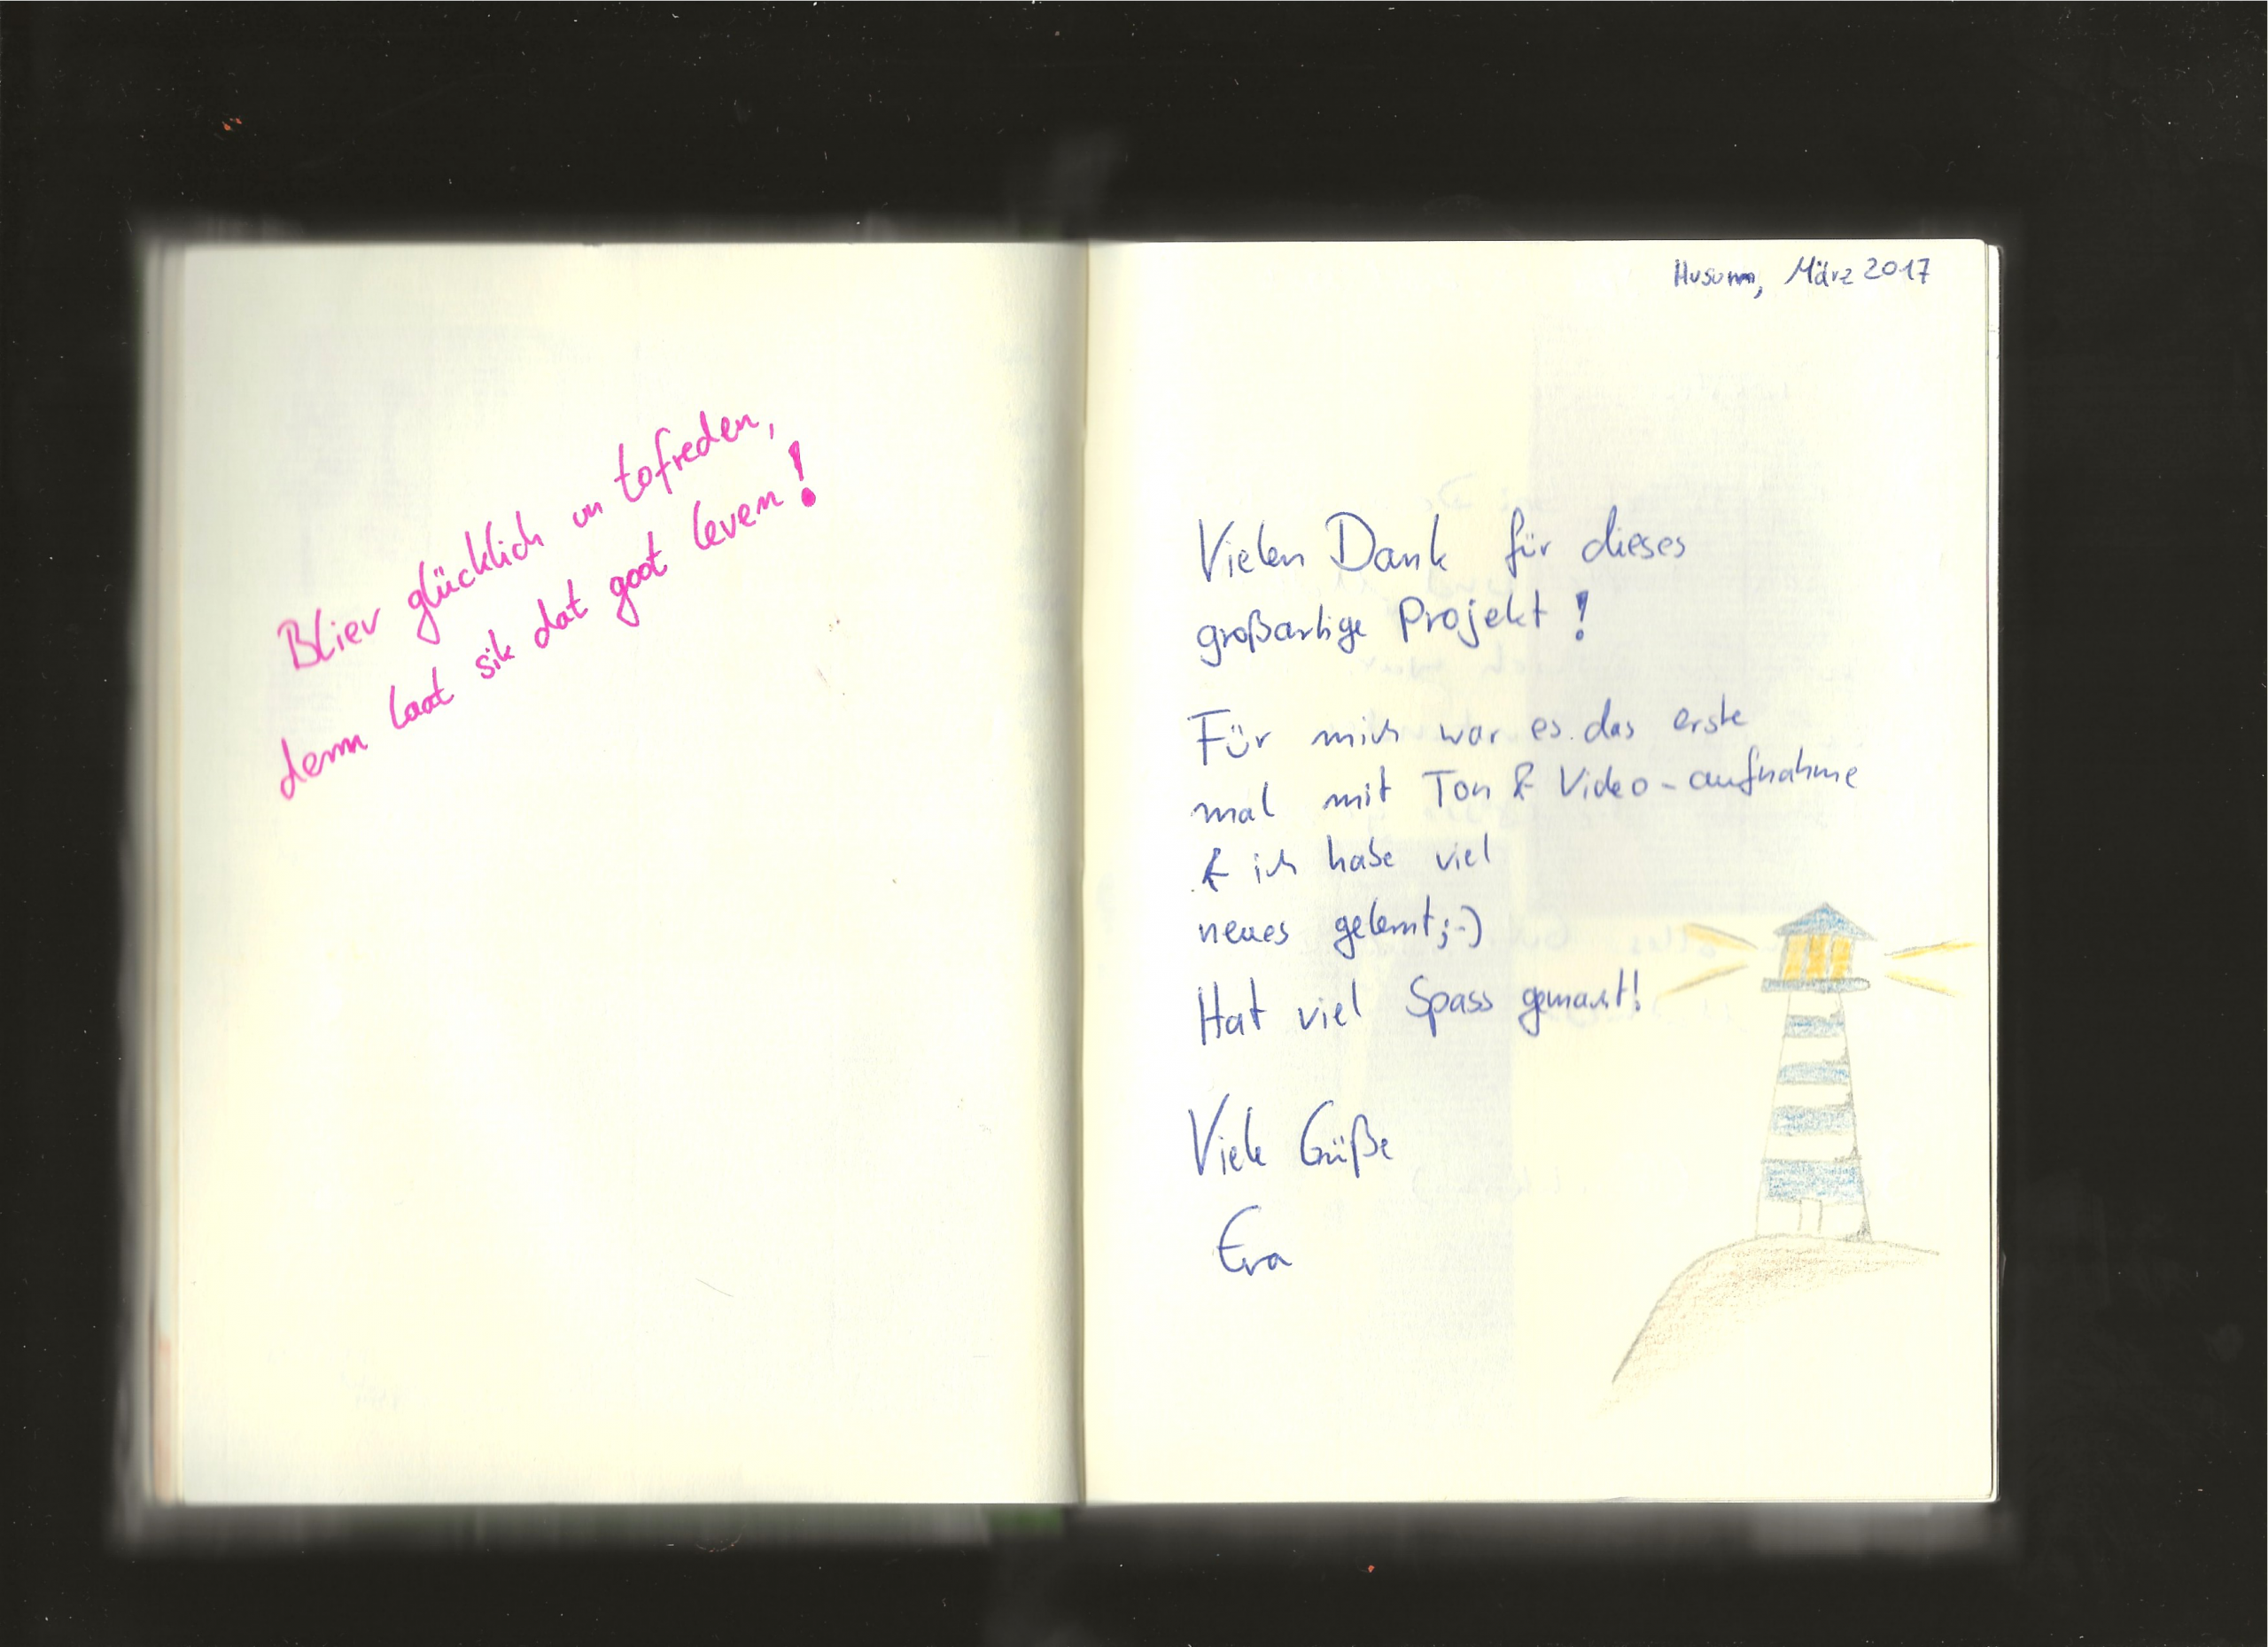 Bliev glücklich un tofreden,
denn laat sik dat goot leven!
Husum, März 2017
Vielen Dank für dieses
großartige Projekt!
Für mich war es das erste
mal mit Ton & Video-aufnahme
& ich habe viel
neues gelernt ;-)
Hat viel Spass gemacht!
Viele Grüße
Eva